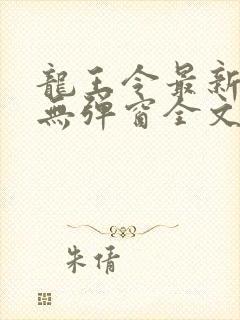 龍王令最新
無彈窗全文
朱倩